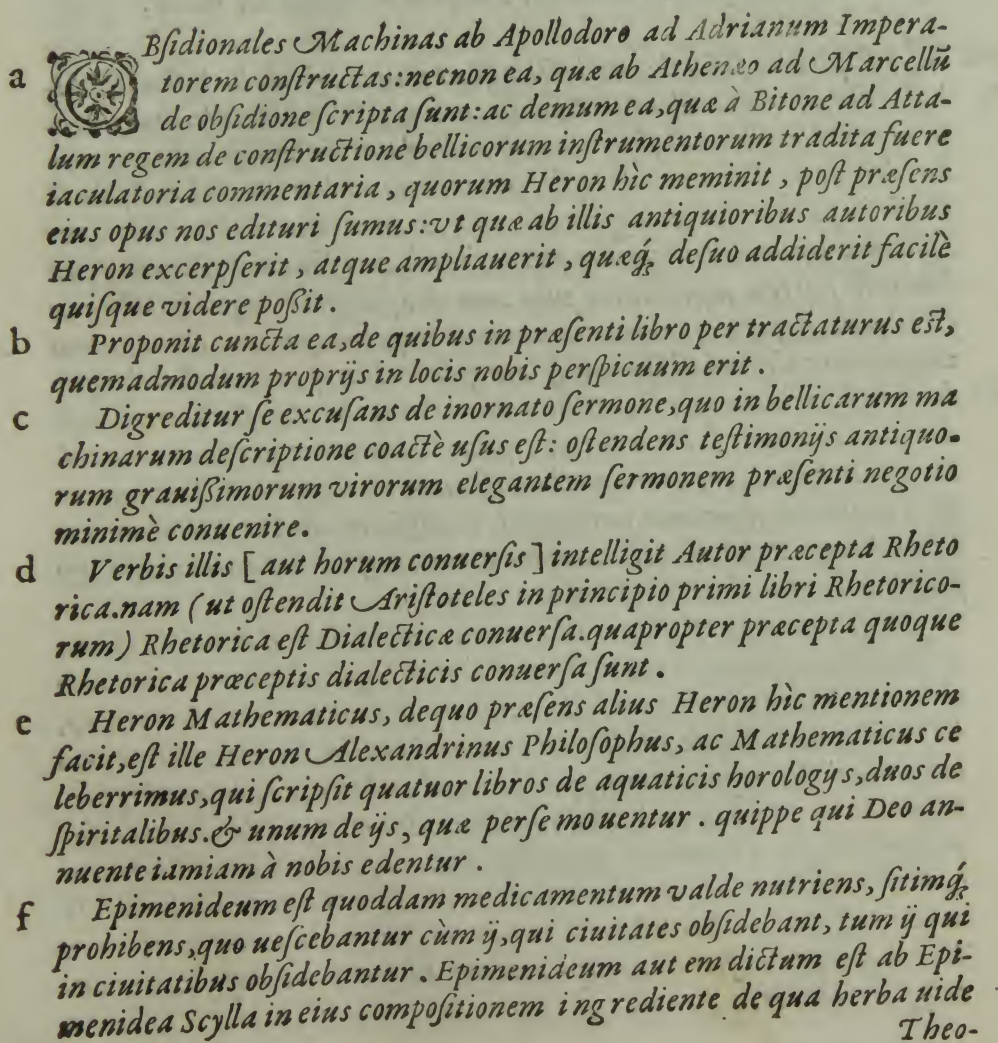 OBſidionales Machinas ab Apollodoro ad Adrianum Impera-
a torem conſtructas: necnon ea, quæ ab Athenæo ad Marcellũ
de obſidione ſcripta ſunt: ac demum ea, quæ à Bitone ad Atta-
lum regem de conſtructione bellicorum inſtrumentorum tradita fuere
iaculatoria commentaria, quorum Heron hìc meminit, poſt præſens
eius opus nos edituri ſumus: vt quæ ab illis antiquioribus autoribus
Heron excerpſerit, atque ampliauerit, quæq́; deſuo addiderit facilè
quiſque videre poßit.
b Proponit cuncta ea, de quibus in præſenti libro per tractaturus eſt,
quemadmodum proprijs in locis nobis perſpicuum erit.
c Digreditur ſe excuſans de inornato ſermone, quo in bellicarum ma
chinarum deſcriptione coactè uſus eſt: oſtendens teſtimonijs antiquo-
rum grauißimorum virorum elegantem ſermonem præſenti negotio
minimè conuenire.
d Verbis illis [aut horum conuerſis] intelligit Autor præcepta Rheto
rica. nam (ut oſtendit Ariſtoteles in principio primi libri Rhetorico-
rum) Rhetorica eſt Dialecticæ conuerſa. quapropter præcepta quoque
Rhetorica præceptis dialecticis conuerſa ſunt.
e Heron Mathematicus, dequo præſens alius Heron hìc mentionem
facit, eſt ille Heron Alexandrinus Philoſophus, ac Mathematicus ce
leberrimus, qui ſcripſit quatuor libros de aquaticis horologijs, duos de
ſpiritalibus. & unum de ijs, quæ perſe mouentur. quippe qui Deo an-
nuente iamiam à nobis edentur.
f Epimenideum eſt quoddam medicamentum valde nutriens, ſitimq́;
prohibens, quo ueſcebantur cùm ij, qui ciuitates obſidebant, tum ij qui
in ciuitatibus obſidebantur. Epimenideum aut em dictum eſt ab Epi-
menidea Scylla in eius compoſitionem ingrediente de qua herba uide
Theo-